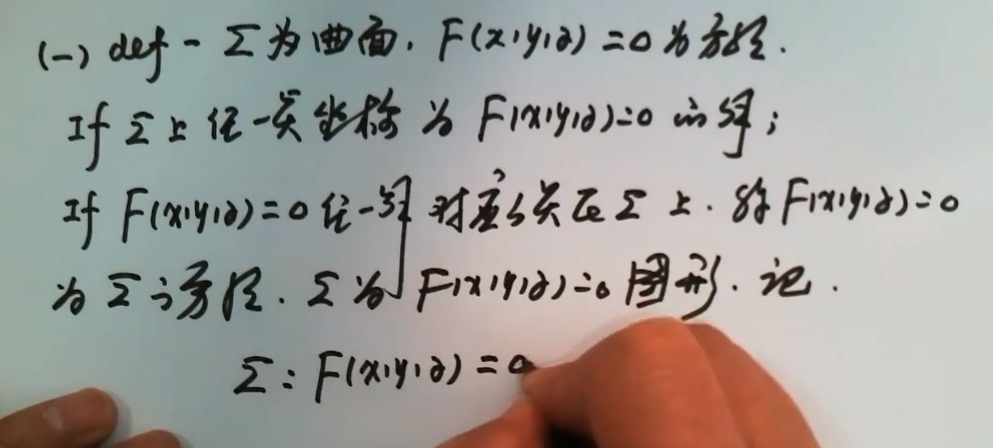 (一) def - Σ为曲面, F(x,y,z)=0为方程.
If Σ上任一点坐标为F(x,y,z)=0的解;
If F(x,y,z)=0任一解对应的点在Σ上. 称F(x,y,z)=0
为Σ的方程. Σ为F(x,y,z)=0图形. 记.
Σ: F(x,y,z)=0